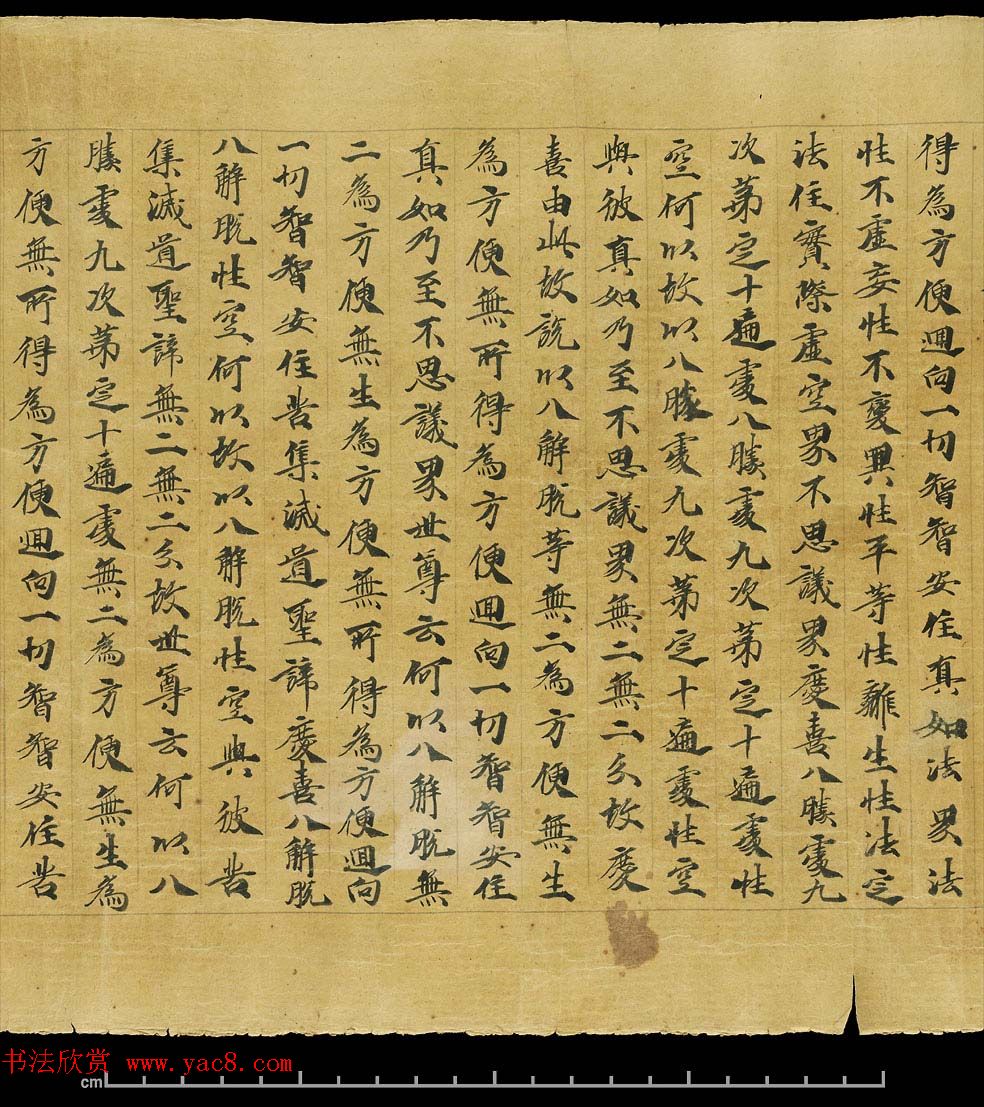 得為方便迴向一切智智安住真如法界法
性不虛妄性不變異性平等性離生性法定
法住實際虛空界不思議界慶喜八勝處九
次第定十遍處八勝處九次第定十遍處性
空何以故以八勝處九次第定十遍處性空
與彼真如乃至不思議界無二無二分故慶
喜由此故說以八解脫等無二為方便無生
為方便無所得為方便迴向一切智智安住
真如乃至不思議界世尊云何以八解脫無
二為方便無生為方便無所得為方便迴向
一切智智安住苦集滅道聖諦慶喜八解脫
八解脫性空何以故以八解脫性空與彼苦
集滅道聖諦無二無二分故世尊云何以八
勝處九次第定十遍處無二為方便無生為
方便無所得為方便迴向一切智智安住苦
书法欣赏 www.yac8.com
cm